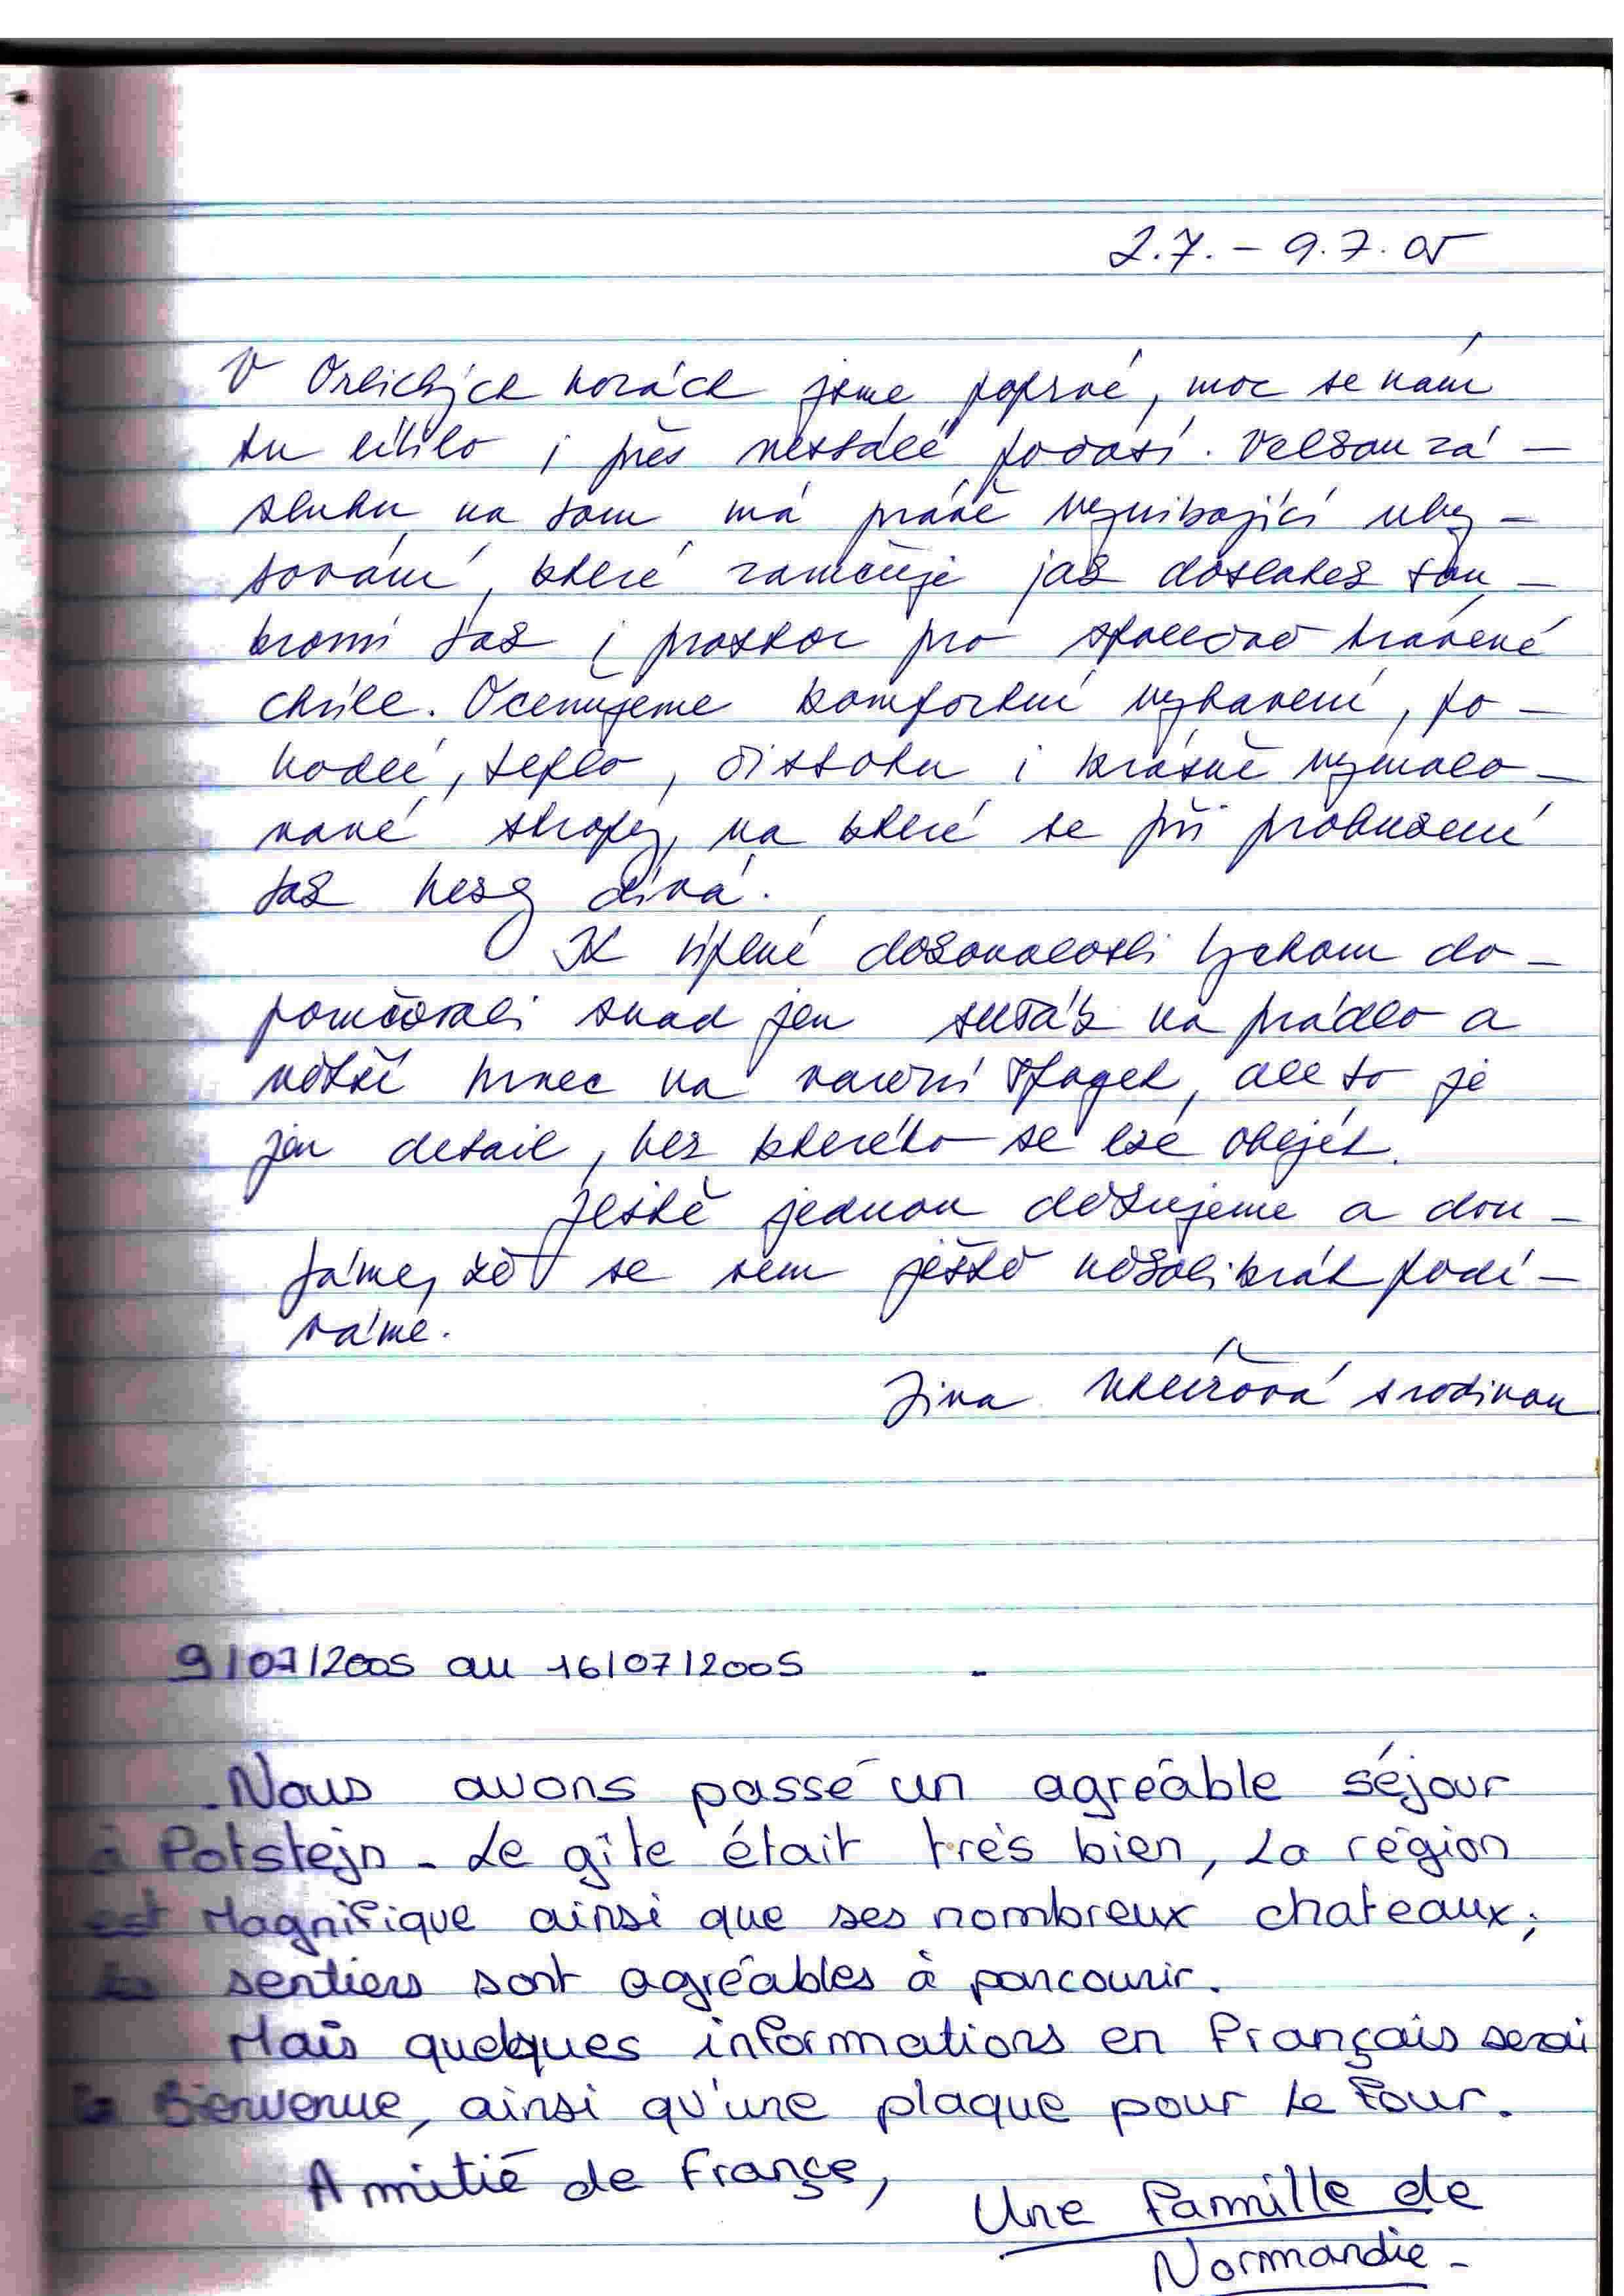 2.7. – 9.7.05
V Orlických horách jsme poprvé, moc se nám
tu líbilo i přes nestálé počasí. Velkou zá –
sluhu na tom má právě vynikající uby –
tování, které zaručuje jak dostatek sou –
kromí tak i prostor pro společně trávené
chvíle. Oceňujeme komfortní vybavení, po –
hodlí, teplo, čistotu i krásně vymalo –
vané stropy, na které se při probuzení
tak hezky dívá.
K úplné dokonalosti bychom do –
poručovali snad jen sušák na prádlo a
větší hrnec na vaření špaget, ale to je
jen detail, bez kterého se lze obejít.
Ještě jednou děkujeme a dou –
fáme, že se sem ještě několikrát podí –
váme.
Jina s rodinou
9/07/2005 au 16/07/2005 -
Nous avons passé un agréable séjour
à Potstejn - Le gîte était très bien, La région
est Magnifique ainsi que ses nombreux chateaux;
les sentiers sont agréables à parcourir.
Mais quelques informations en Français serai
la Bienvenue, ainsi qu'une plaque pour le Four.
Amitié de France,
Une Famille de
Normandie -